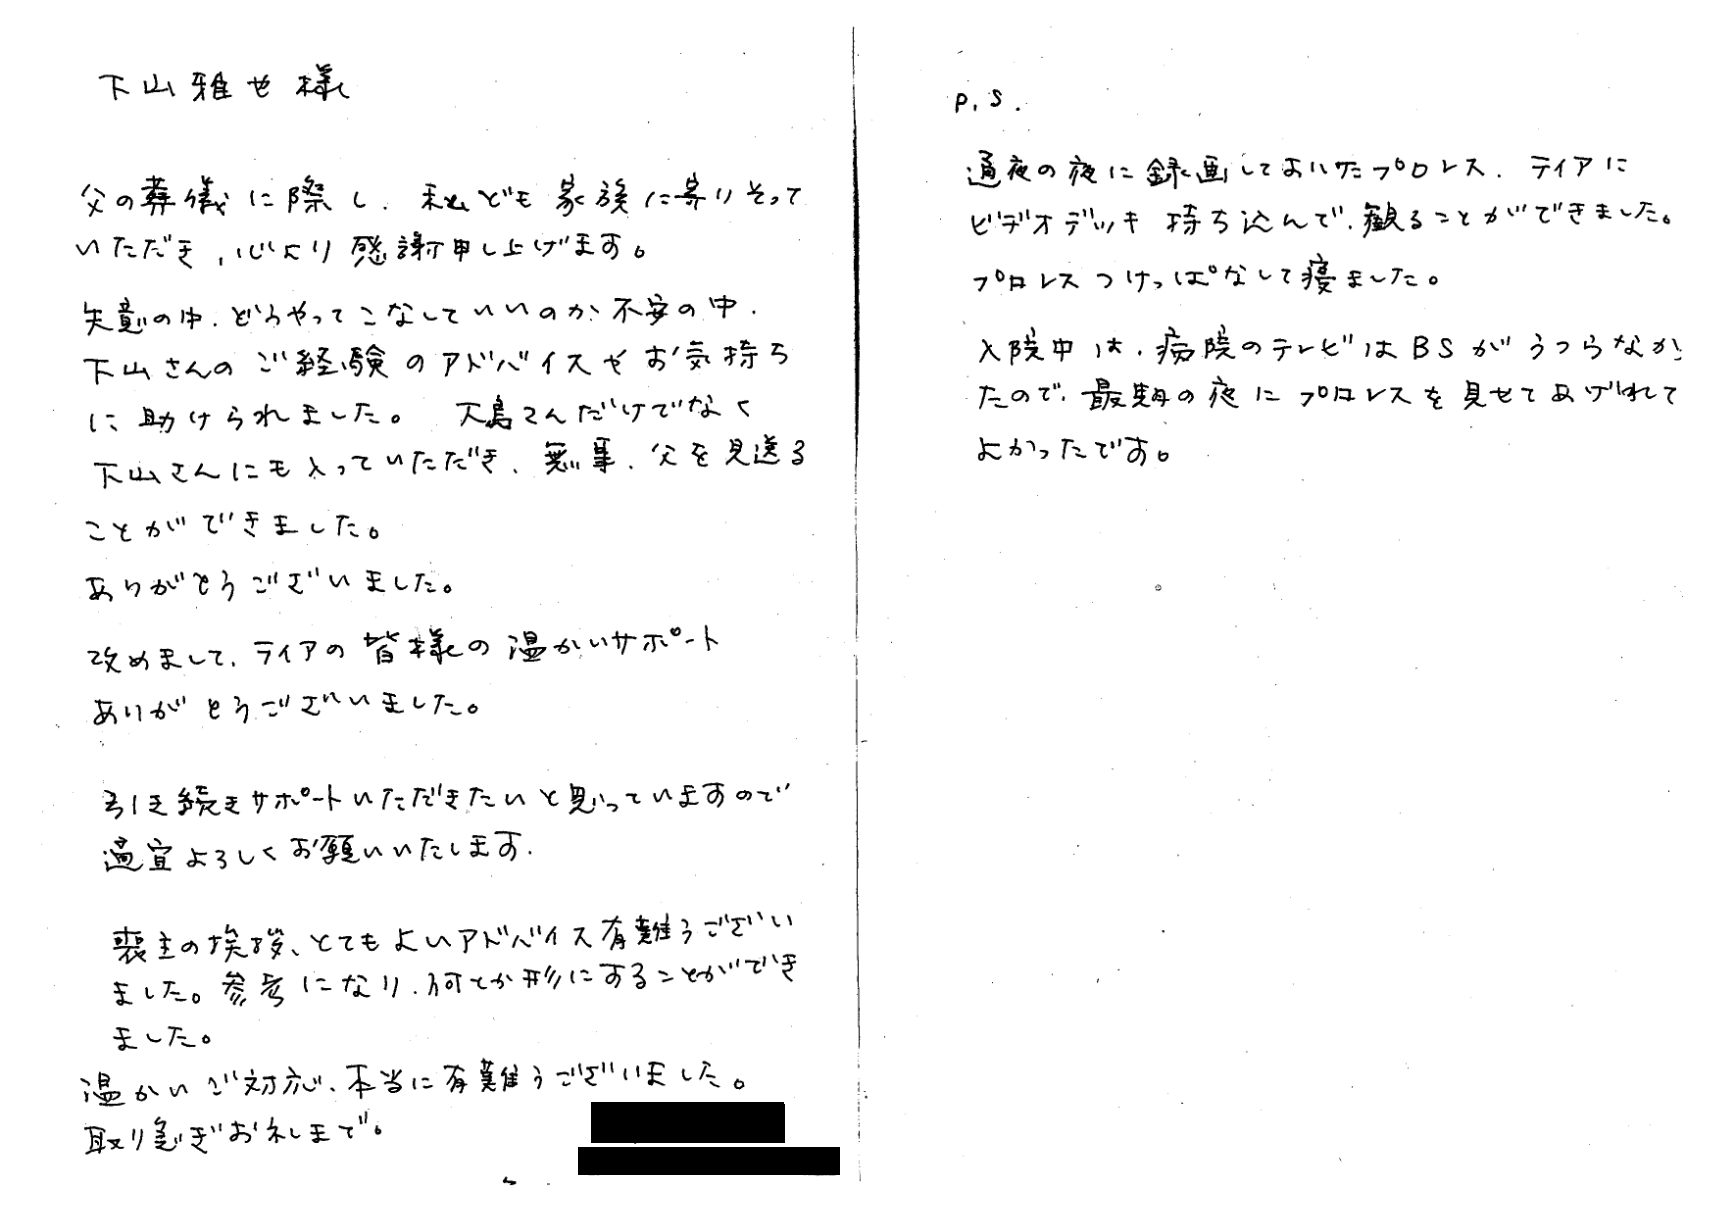 下山雅也様
父の葬儀に際し、私ども家族に寄りそって
いただき、心より感謝申し上げます。
失意の中、どうやってこなしていいのか不安の中、
下山さんのご経験のアドバイスやお気持ち
に助けられました。 大島さんだけでなく
下山さんにも入っていただき、無事、父を見送る
ことができました。
ありがとうございました。
改めまして、ティアの皆様の温かいサポート
ありがとうございました。
引き続きサポートいただきたいと思っていますので
適宜よろしくお願いいたします。
喪主の挨拶、とてもよいアドバイス有難うござい
ました。参考になり、何とか形にすることができ
ました。
温かいご対応、本当に有難うございました。
取り急ぎお礼まで。
P.S.
通夜の夜に録画しておいたプロレス、ティアに
ビデオデッキ持ち込んで、観ることができました。
プロレスつけっぱなしで寝ました。
入院中は、病院のテレビはBSがうつらなか
たので、最期の夜にプロレスを見せてあげれて
よかったです。